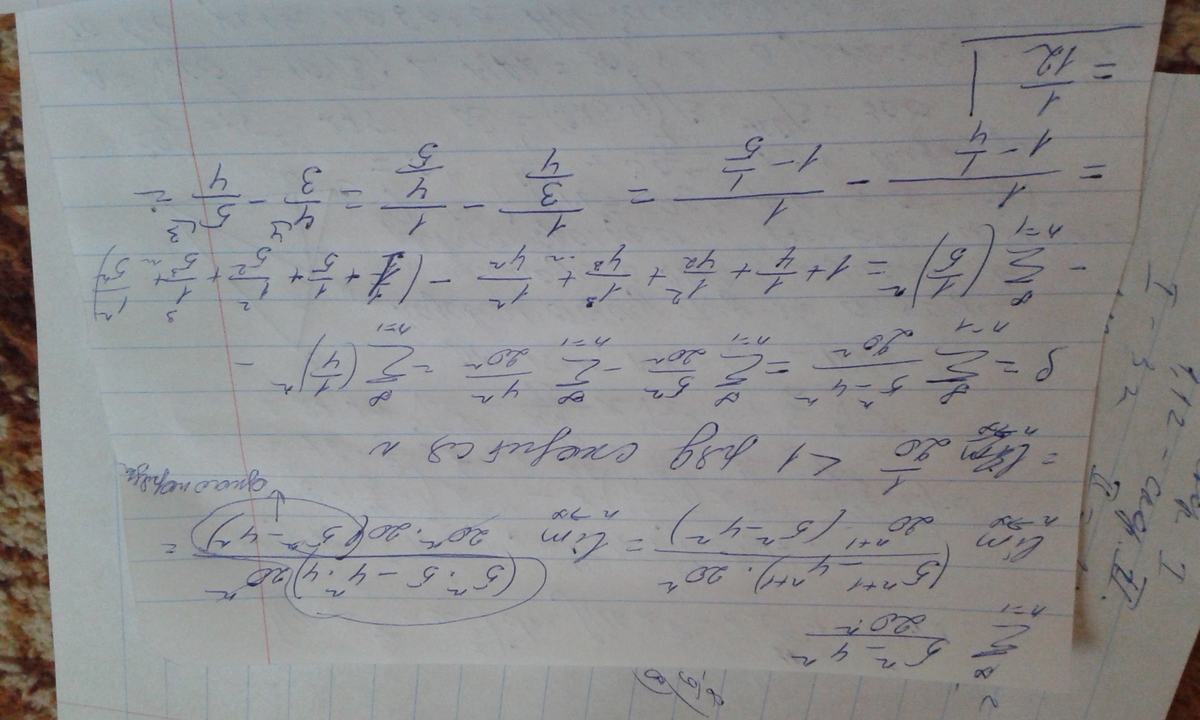 2.
∞ Σ n=1 (5ⁿ - 4ⁿ)/20ⁿ
lim n→∞ (5ⁿ⁺¹ - 4ⁿ⁺¹)·20ⁿ / 20ⁿ⁺¹ (5ⁿ - 4ⁿ) = lim n→∞ (5ⁿ·5 - 4ⁿ·4) 20ⁿ / 20ⁿ·20 (5ⁿ - 4ⁿ) =
= lim n→∞ 1/20 < 1 ряд сходится и
S = ∞ Σ n=1 (5ⁿ - 4ⁿ)/20ⁿ = ∞ Σ n=1 5ⁿ/20ⁿ - ∞ Σ n=1 4ⁿ/20ⁿ = ∞ Σ n=1 (1/4)ⁿ -
- ∞ Σ n=1 (1/5)ⁿ = 1 + 1/4 + 1²/4² + 1³/4³ + ... 1ⁿ/4ⁿ - (1 + 1/5 + 1²/5² + 1³/5³ + ... 1ⁿ/5ⁿ)
= 1/(1 - 1/4) - 1/(1 - 1/5) = 1/(3/4) - 1/(4/5) = 4/3 - 5/4 =
= 1/12